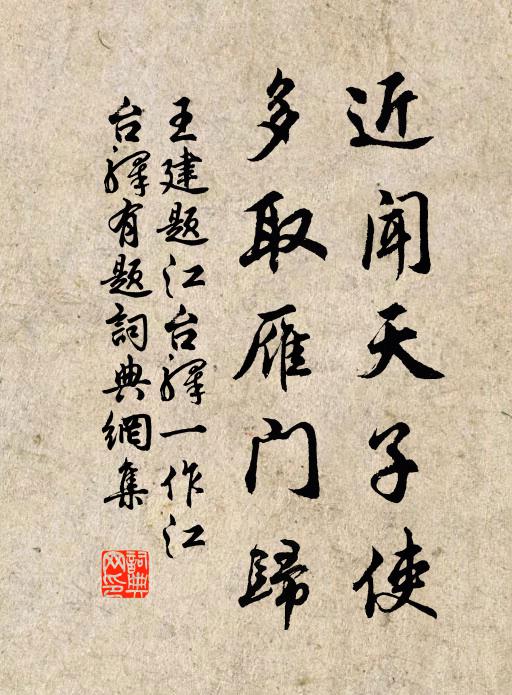 近闻天子使
多取雁门歸
王建题江台驛一作江
台驛有题詞典網集
詞典網印